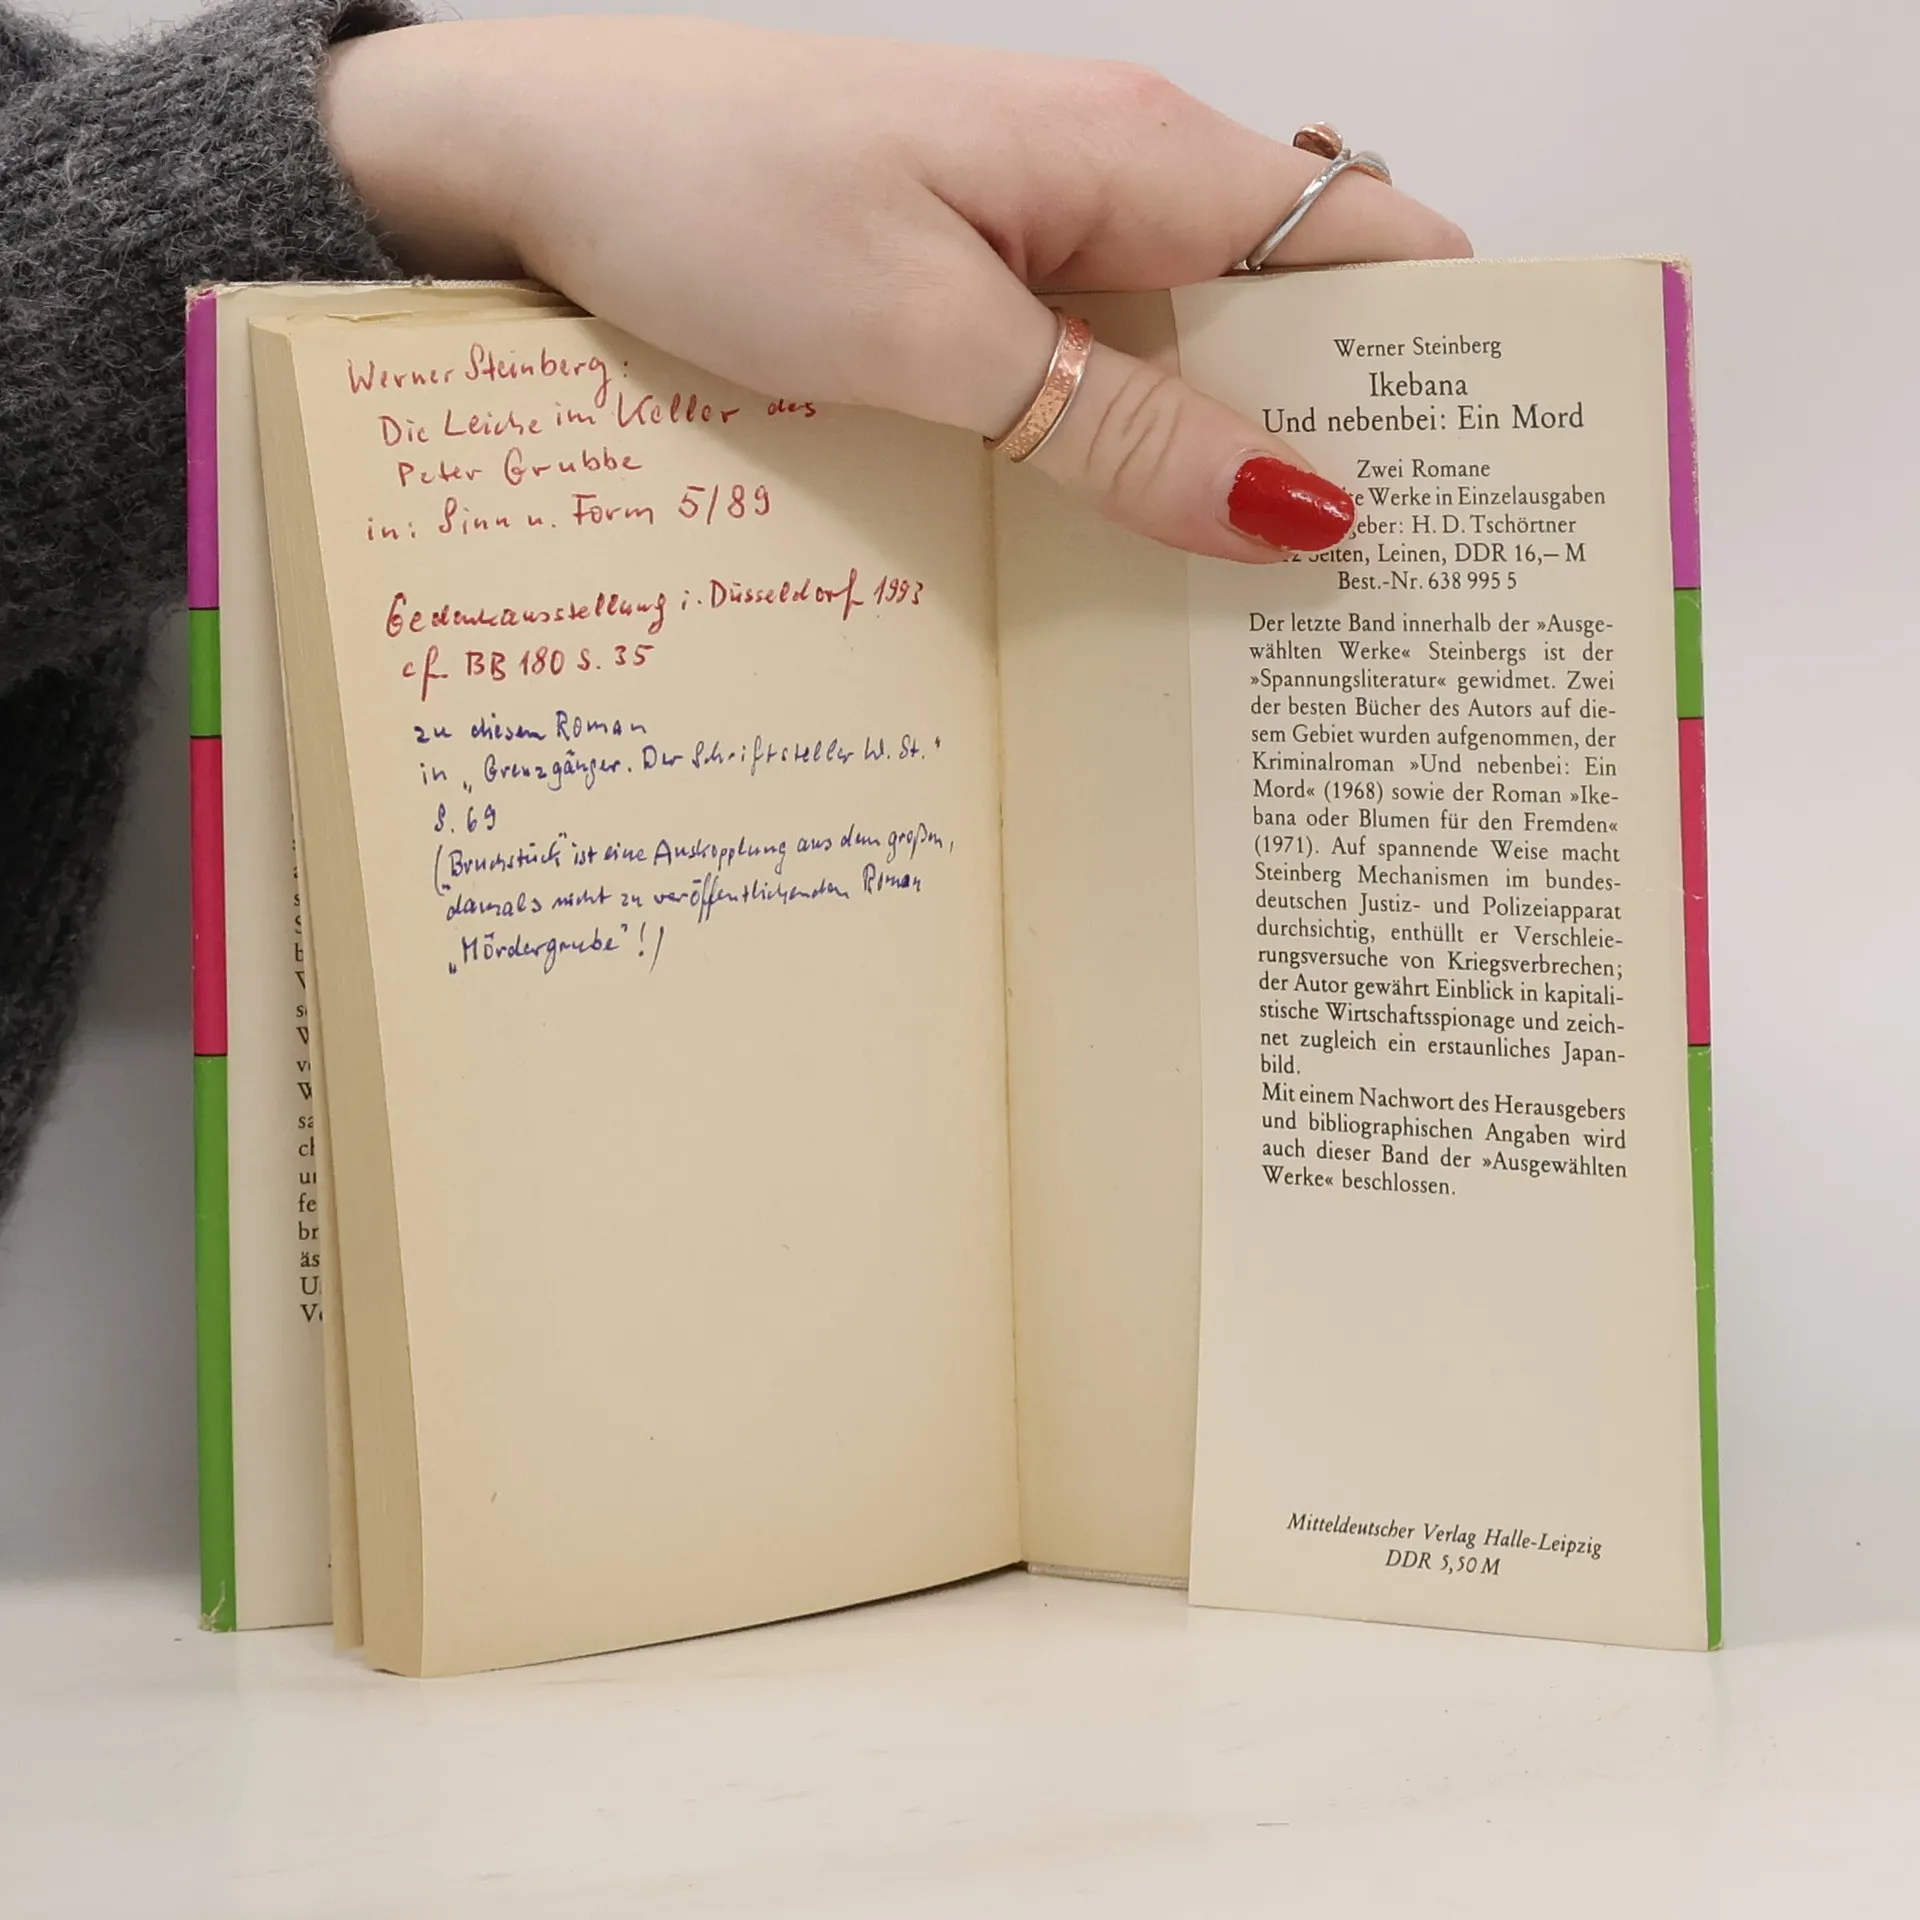 Werner Steinberg:
Die Leiche im Keller des
Peter Grubbe
in: Sinn u. Form 5/89
Gedenkausstellung i. Düsseldorf 1993
cf. BB 180 S. 35
zu diesem Roman
in „Grenzgänger. Der Schriftsteller W. St."
S. 69
(„Bruchstück" ist eine Auskopplung aus dem großen,
damals nicht zu veröffentlichenden Roman
„Mördergrube"!)
Werner Steinberg
Ikebana
Und nebenbei: Ein Mord
Zwei Romane
Werke in Einzelausgaben
eber: H. D. Tschörtner
Seiten, Leinen, DDR 16,— M
Best.-Nr. 638 995 5
Der letzte Band innerhalb der »Ausge-
wählten Werke« Steinbergs ist der
»Spannungsliteratur« gewidmet. Zwei
der besten Bücher des Autors auf die-
sem Gebiet wurden aufgenommen, der
Kriminalroman »Und nebenbei: Ein
Mord« (1968) sowie der Roman »Ike-
bana oder Blumen für den Fremden«
(1971). Auf spannende Weise macht
Steinberg Mechanismen im bundes-
deutschen Justiz- und Polizeiapparat
durchsichtig, enthüllt er Verschleie-
rungsversuche von Kriegsverbrechen;
der Autor gewährt Einblick in kapitali-
stische Wirtschaftsspionage und zeich-
net zugleich ein erstaunliches Japan-
bild.
Mit einem Nachwort des Herausgebers
und bibliographischen Angaben wird
auch dieser Band der »Ausgewählten
Werke« beschlossen.
Mitteldeutscher Verlag Halle-Leipzig
DDR 5,50 M